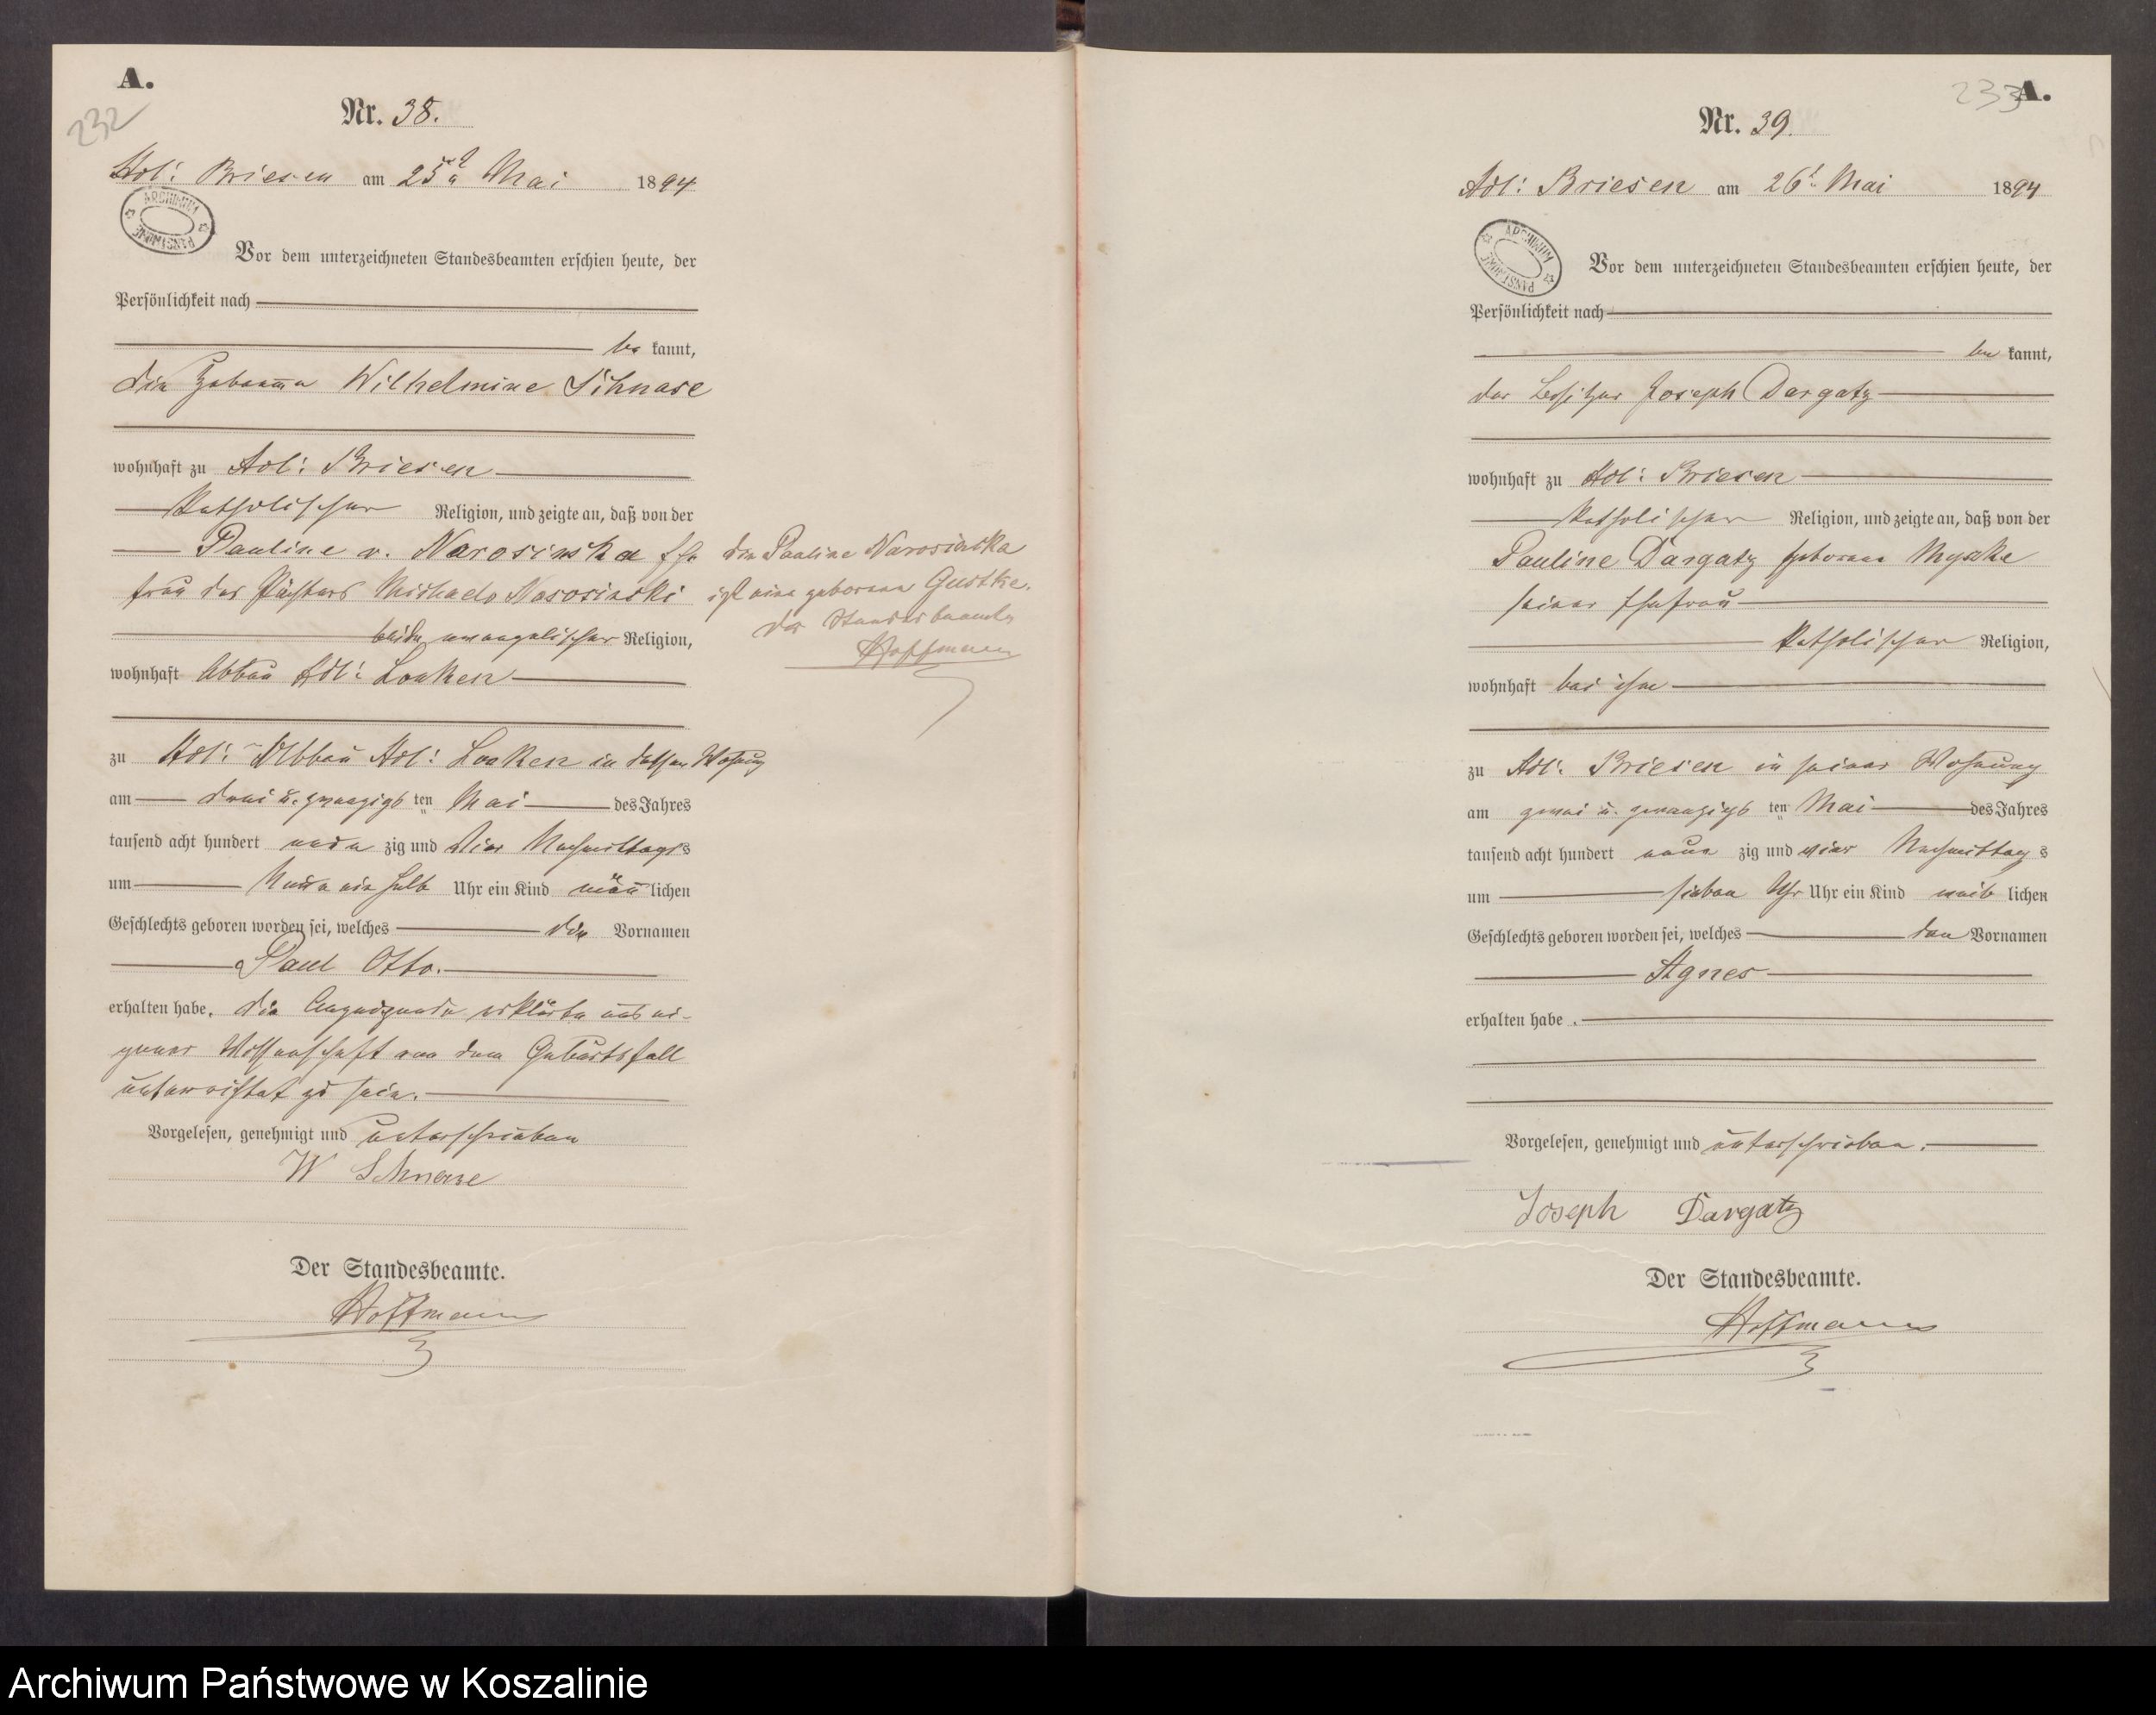 A.
232
Nr. 38.
Adl: Briesen am 25 Mai 1894
ARCHIWUM PAŃSTWOWE
Vor dem unterzeichneten Standesbeamten erschien heute, der
Persönlichkeit nach
be kannt,
die Hebamme Wilhelmine Schnase
wohnhaft zu Adl: Briesen
katholischer Religion, und zeigte an, daß von der
Pauline v. Narosinska Ehe
frau des Pächters Michaelo Narosinski
beide evangelischer Religion,
wohnhaft Abbau Adl: Loaken
die Pauline Narosinska
ist eine geborene Gustke.
Der Standesbeamte
Hoffmann
zu Adl: Abbau Adl: Loaken in dessen Wohnung
am drei u. zwanzigs ten Mai des Jahres
tausend acht hundert neun zig und vier Nachmittags
um Uhr ein Kind männlichen
Geschlechts geboren worden sei, welches die Vornamen
Paul Otto.
erhalten habe. Die Anzeigende erklärte aus ei-
gener Wissenschaft von dem Geburtsfall
unterrichtet zu sein.
Vorgelesen, genehmigt und unterschrieben
W Schnase
Der Standesbeamte.
Hoffmann
233
A.
Nr. 39.
Adl: Briesen am 26t Mai 1894
ARCHIWUM PAŃSTWOWE
Vor dem unterzeichneten Standesbeamten erschien heute, der
Persönlichkeit nach
be kannt,
der Besitzer Joseph Dargatz
wohnhaft zu Adl: Briesen
katholischer Religion, und zeigte an, daß von der
Pauline Dargatz geborene Myszke
seiner Ehefrau
katholischer Religion,
wohnhaft bei ihm
zu Adl: Briesen in seiner Wohnung
am zwei u. zwanzigs ten Mai des Jahres
tausend acht hundert neun zig und vier Nachmittag s
um sieben Uhr Uhr ein Kind weib lichen
Geschlechts geboren worden sei, welches den Vornamen
Agnes
erhalten habe.
Vorgelesen, genehmigt und unterschrieben.
Joseph Dargatz
Der Standesbeamte.
Hoffmann
Archiwum Państwowe w Koszalinie